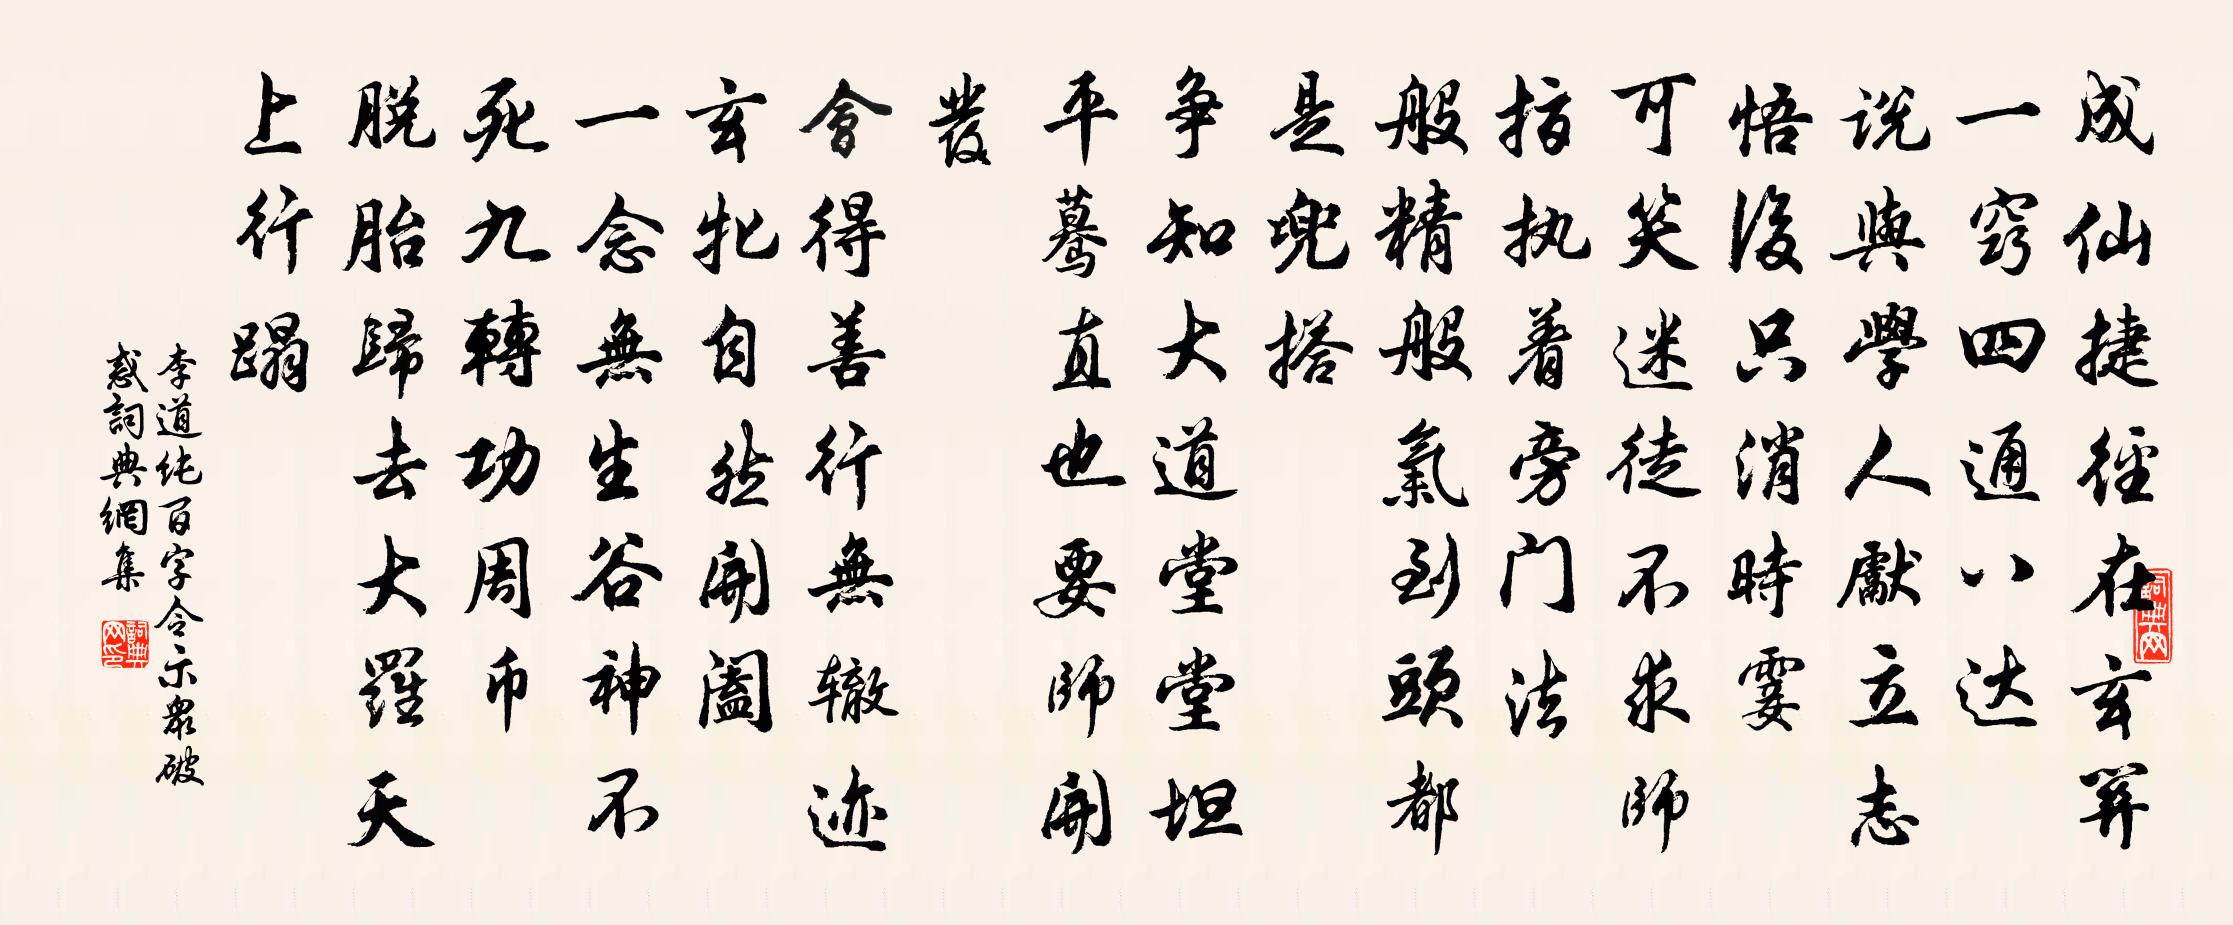 成仙捷徑在玄關
一窍四通八达
说與學人獻立志
悟後只消時霎
可笑迷徒不求師
指执着旁门法
般精般氣到頭都
是兜搭
争知大道堂堂坦
平驀直也要師開
發
會得善行無辙迹
玄牝自然開阖
一念無生谷神不
死九轉功周帀
脱胎歸去大羅天
上行蹋
李道纯百字令示眾破
惑詞典網集
詞典网
詞典网印